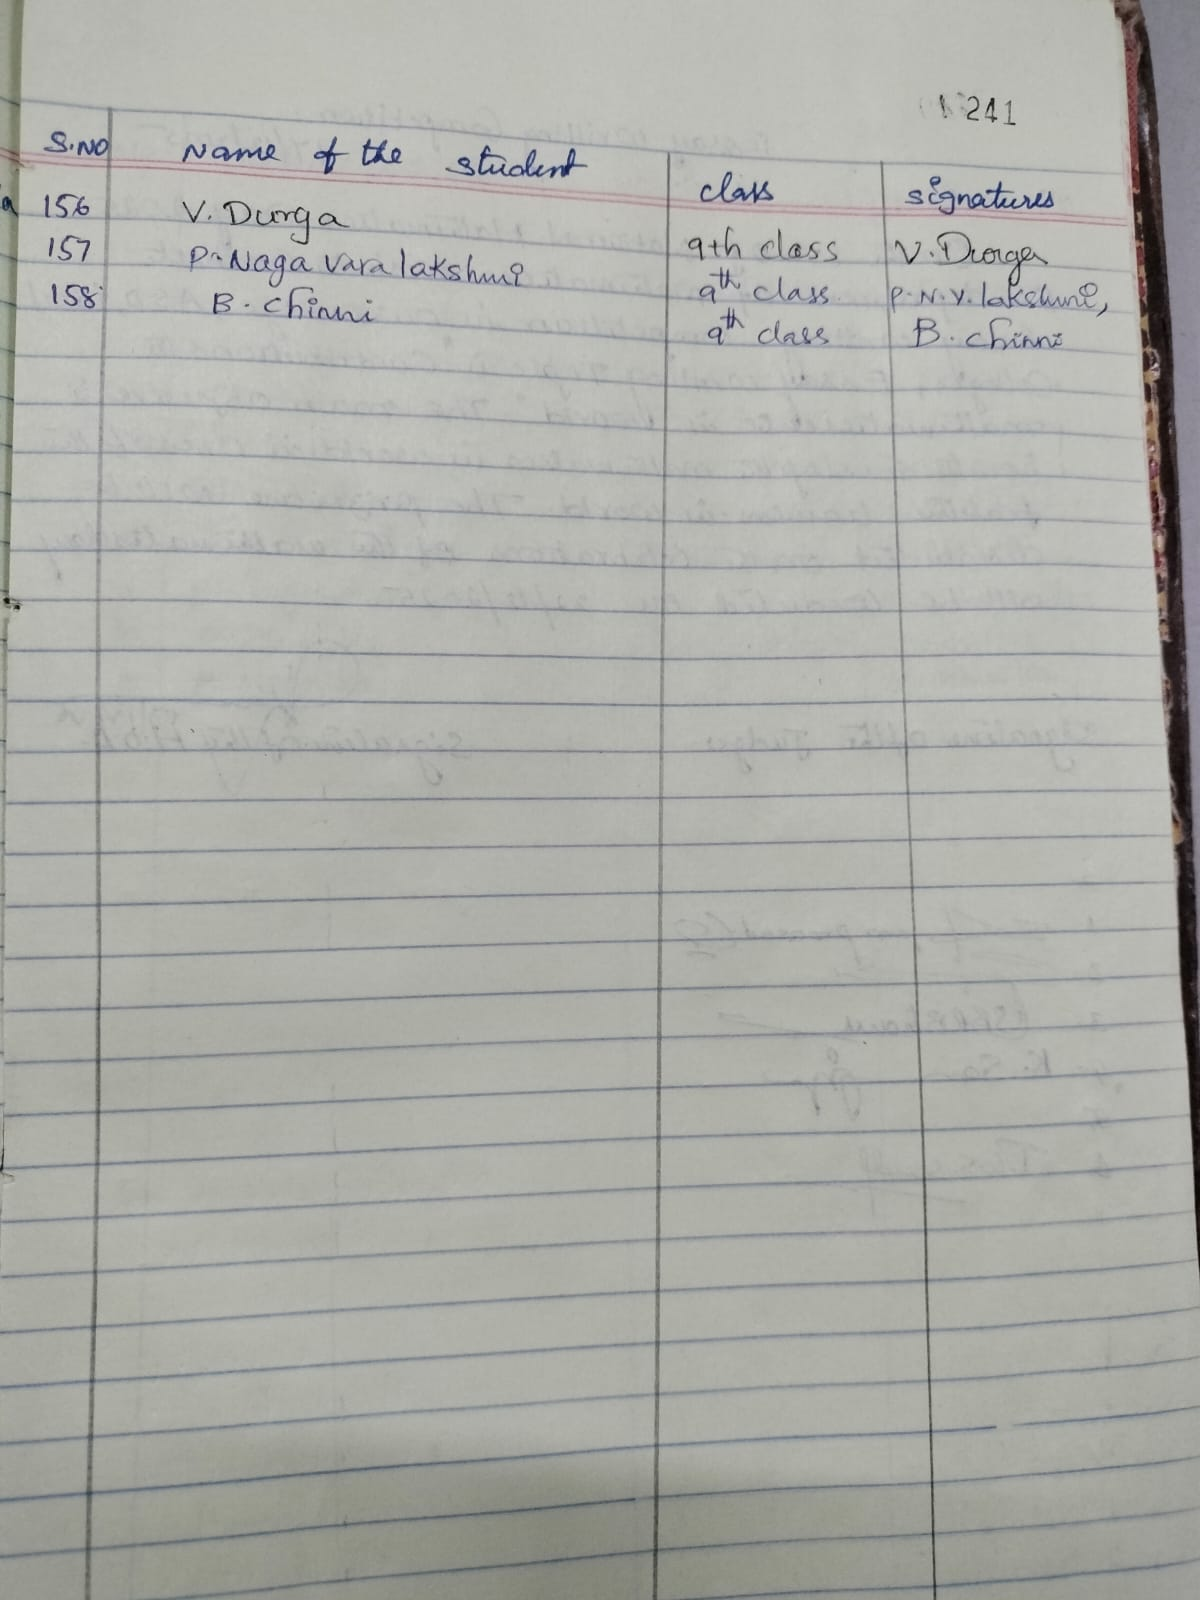 241
S.NO Name of the student class signatures
156 V. Durga 9th class V. Durga
157 P. Naga Vara lakshmi 9th class P. N. V. lakshmi,
158 B. Chinni 9th class B. Chinni